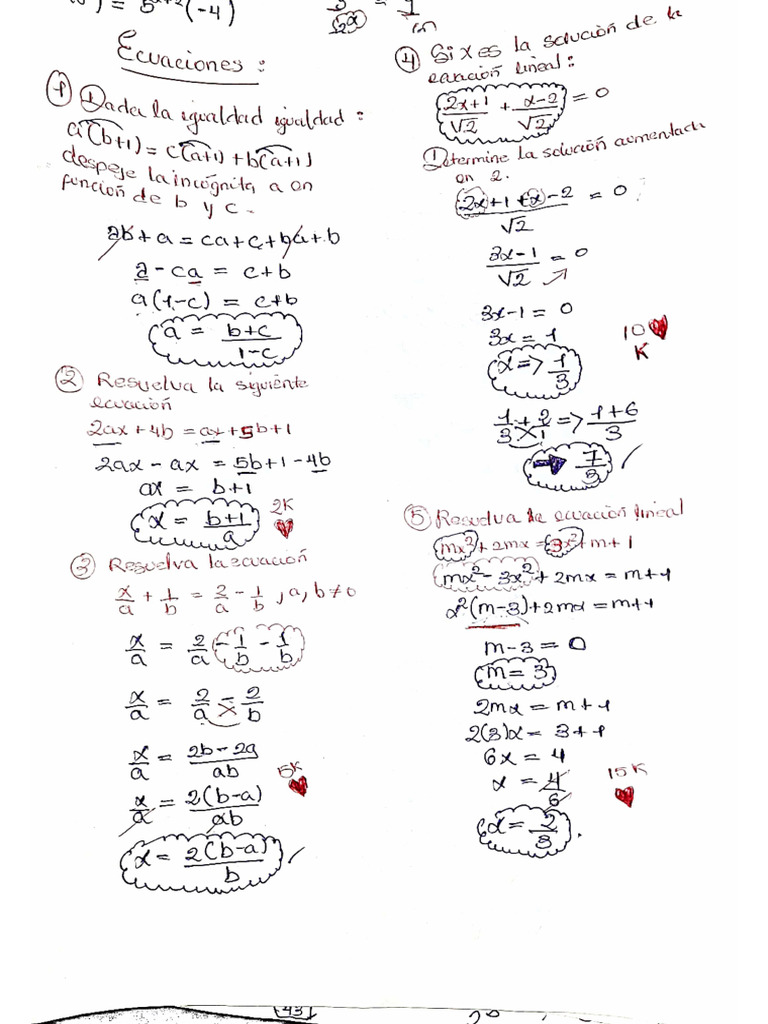 ) = 5^{x+2}(-4)
Ecuaciones:
① Dada la igualdad igualdad:
a(b+1) = c(a+1) + b(a+1)
despeje la incógnita a en
función de b y c.
ab + a = ca + c + ba + b
a - ca = c + b
a(1-c) = c+b
a = \frac{b+c}{1-c}
② Resuelva la siguiente
ecuación
2ax + 4b = ax + 5b + 1
2ax - ax = 5b + 1 - 4b
ax = b + 1
x = \frac{b+1}{a}
2K
③ Resuelva la ecuación
\frac{x}{a} + \frac{1}{b} = \frac{2}{a} - \frac{1}{b}, a, b ≠ 0
\frac{x}{a} = \frac{2}{a} - \frac{1}{b} - \frac{1}{b}
\frac{x}{a} = \frac{2}{a} - \frac{2}{b}
\frac{x}{a} = \frac{2b-2a}{ab}
5K
\frac{x}{a} = \frac{2(b-a)}{ab}
x = \frac{2(b-a)}{b} ✓
④ Si x es la solución de la
ecuación lineal:
\frac{2x+1}{√2} + \frac{x-2}{√2} = 0
Determine la solución aumentada
en 2.
\frac{2x+1+x-2}{√2} = 0
\frac{3x-1}{√2} = 0
3x - 1 = 0
3x = 1
10
K
x => \frac{1}{3}
\frac{1}{3} + \frac{2}{1} => \frac{1+6}{3}
→ \frac{7}{3} ✓
⑤ Resuelva la ecuación lineal
mx² + 2mx = 3x² + m + 1
mx² - 3x² + 2mx = m + 1
x²(m-3) + 2mx = m+1
m - 3 = 0
m = 3
2mx = m + 1
2(3)x = 3 + 1
6x = 4
x = \frac{4}{6}
15K
x = \frac{2}{3}.
43